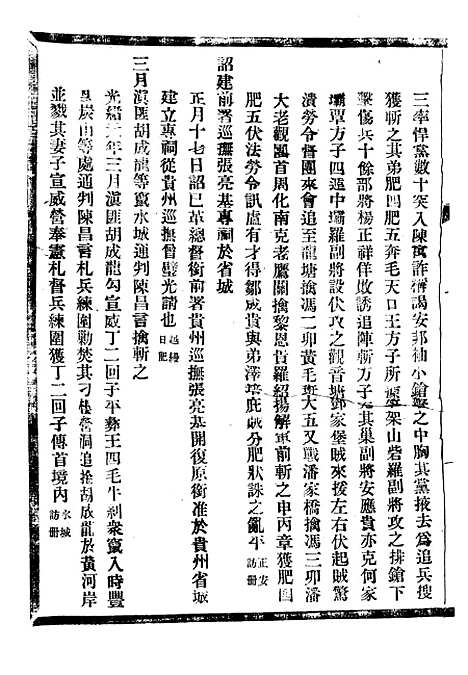 三率悍黨數十突入陳寓詐稱謁安邦袖小鎗擊之中胸其黨掖去爲追兵搜
獲斬之其弟肥四肥五奔毛天口王方子所據架山砦羅副將攻之排鎗下
擊傷兵十餘部將楊正祥佯敗誘追陣斬方子其巢副將安應貴亦克何家
壩覃方子四遁中壩羅副將設伏攻之觀音塘鄧家堡賊來援左右伏起賊驚
潰勞令督團來會追至龍塘擒馮二卯黃毛大五又戰潘家橋擒馮三卯潘
大老觀團首周化南克老鷹關擒黎恩貴羅紹揚解軍前斬之申丙章獲肥四
肥五伏法勞令訊盧有才得鄒成貴與弟澤培庇賊分肥狀誅之亂平正安訪冊
詔建前署巡撫張亮基專祠於省城
正月十七日詔已革總督銜前署貴州巡撫張亮基開復原銜准於貴州省城
建立專祠從貴州巡撫曾璧光請也越縵日記
三月滇匪胡成龍等竄水城通判陳昌言擒斬之
光緒元年三月滇匪胡成龍勾宣威丁二回子平彝王四毛牛糾衆竄入時豐
阜炭山等處通判陳昌言札兵練圍勦焚其刁樓營洞追抢胡成龍於黃河岸
並戮其妻子宣威營奉憲札督兵練圍獲丁二回子傳首境內水城訪冊